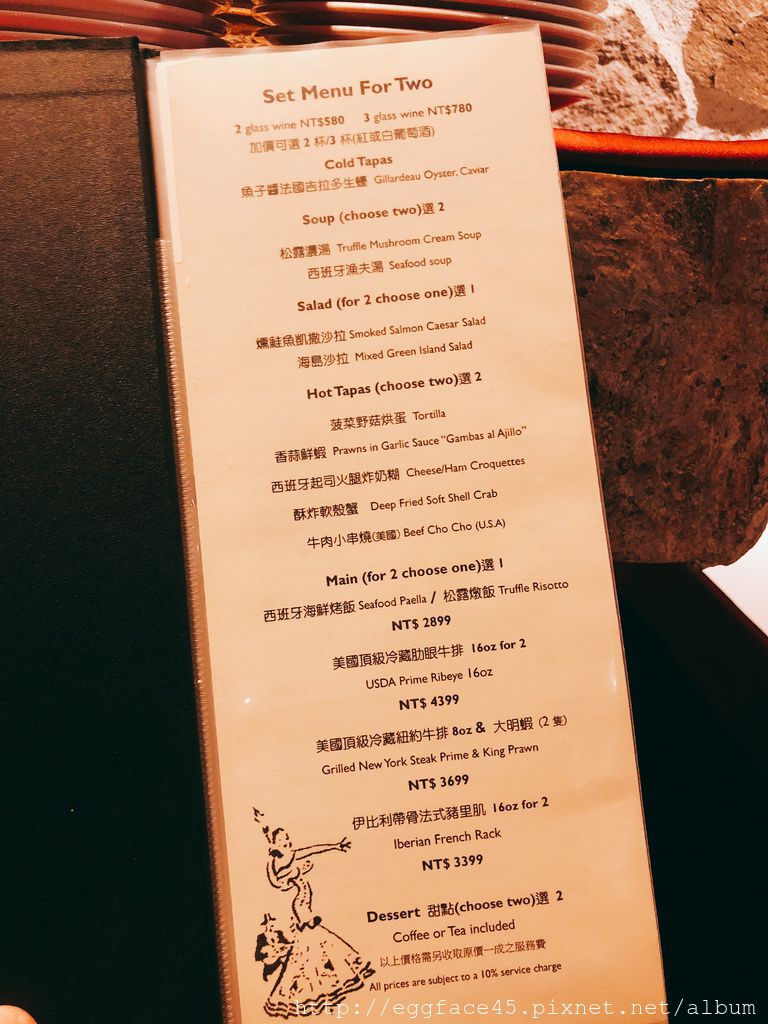 Set Menu For Two
2 glass wine NT$580 3 glass wine NT$780
加價可選 2 杯/3 杯(紅或白葡萄酒)
Cold Tapas
魚子醬法國吉拉多生蠔 Gillardeau Oyster, Caviar
Soup (choose two)選 2
松露濃湯 Truffle Mushroom Cream Soup
西班牙漁夫湯 Seafood soup
Salad (for 2 choose one)選 1
燻鮭魚凱撒沙拉 Smoked Salmon Caesar Salad
海島沙拉 Mixed Green Island Salad
Hot Tapas (choose two)選 2
菠菜野菇烘蛋 Tortilla
香蒜鮮蝦 Prawns in Garlic Sauce "Gambas al Ajillo"
西班牙起司火腿炸奶糊 Cheese/Ham Croquettes
酥炸軟殼蟹 Deep Fried Soft Shell Crab
牛肉小串燒(美國) Beef Cho Cho (U.S.A)
Main (for 2 choose one)選 1
西班牙海鮮烤飯 Seafood Paella / 松露燉飯 Truffle Risotto
NT$ 2899
美國頂級冷藏肋眼牛排 16oz for 2
USDA Prime Ribeye 16oz
NT$ 4399
美國頂級冷藏紐約牛排 8oz & 大明蝦 (2 隻)
Grilled New York Steak Prime & King Prawn
NT$ 3699
伊比利帶骨法式豬里肌 16oz for 2
Iberian French Rack
NT$ 3399
Dessert 甜點(choose two)選 2
Coffee or Tea included
以上價格需另收取原價一成之服務費
All prices are subject to a 10% service charge
http://eggface45.pixnet.net/album